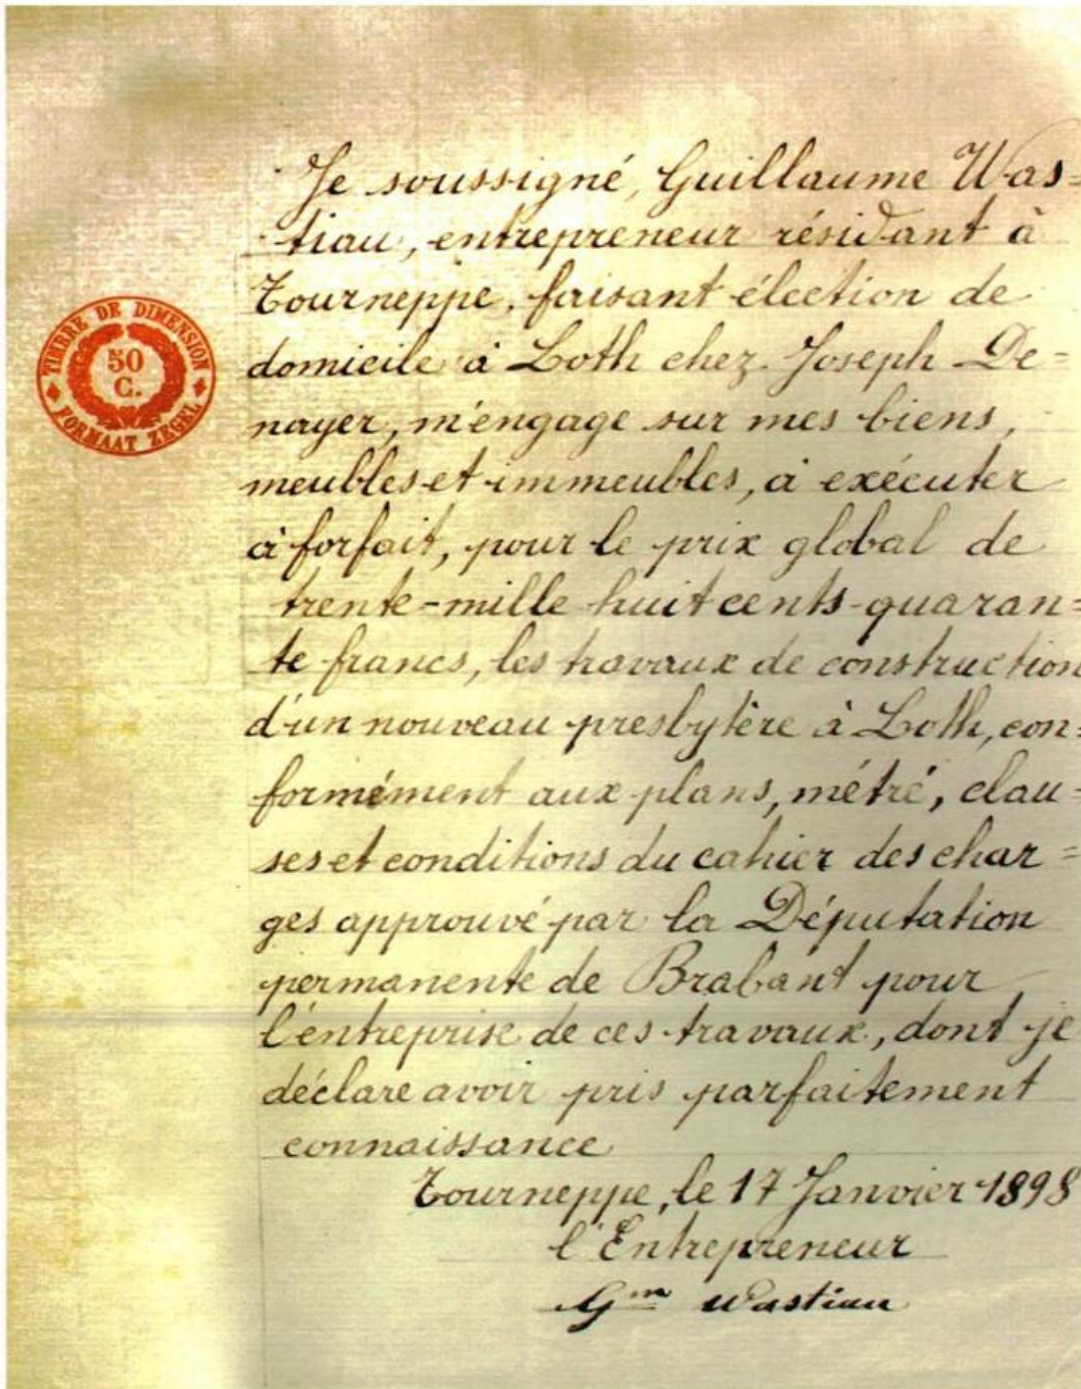 Je soussigné, Guillaume Was=
tiau, entrepreneur résidant à
Tourneppe, faisant élection de
domicile à Loth chez Joseph De=
nayer, m'engage sur mes biens,
meubles et immeubles, à exécuter
à forfait, pour le prix global de
trente-mille huit cents-quaran=
te francs, les travaux de construction
d'un nouveau presbytère à Loth, con=
formément aux plans, métré, clau=
ses et conditions du cahier des char=
ges approuvé par la Députation
permanente de Brabant pour
l'entreprise de ces travaux, dont je
déclare avoir pris parfaitement
connaissance
Tourneppe, le 17 Janvier 1898
l'Entrepreneur
Gm Wastiau
TIMBRE DE DIMENSION
50
C.
FORMAAT ZEGEL